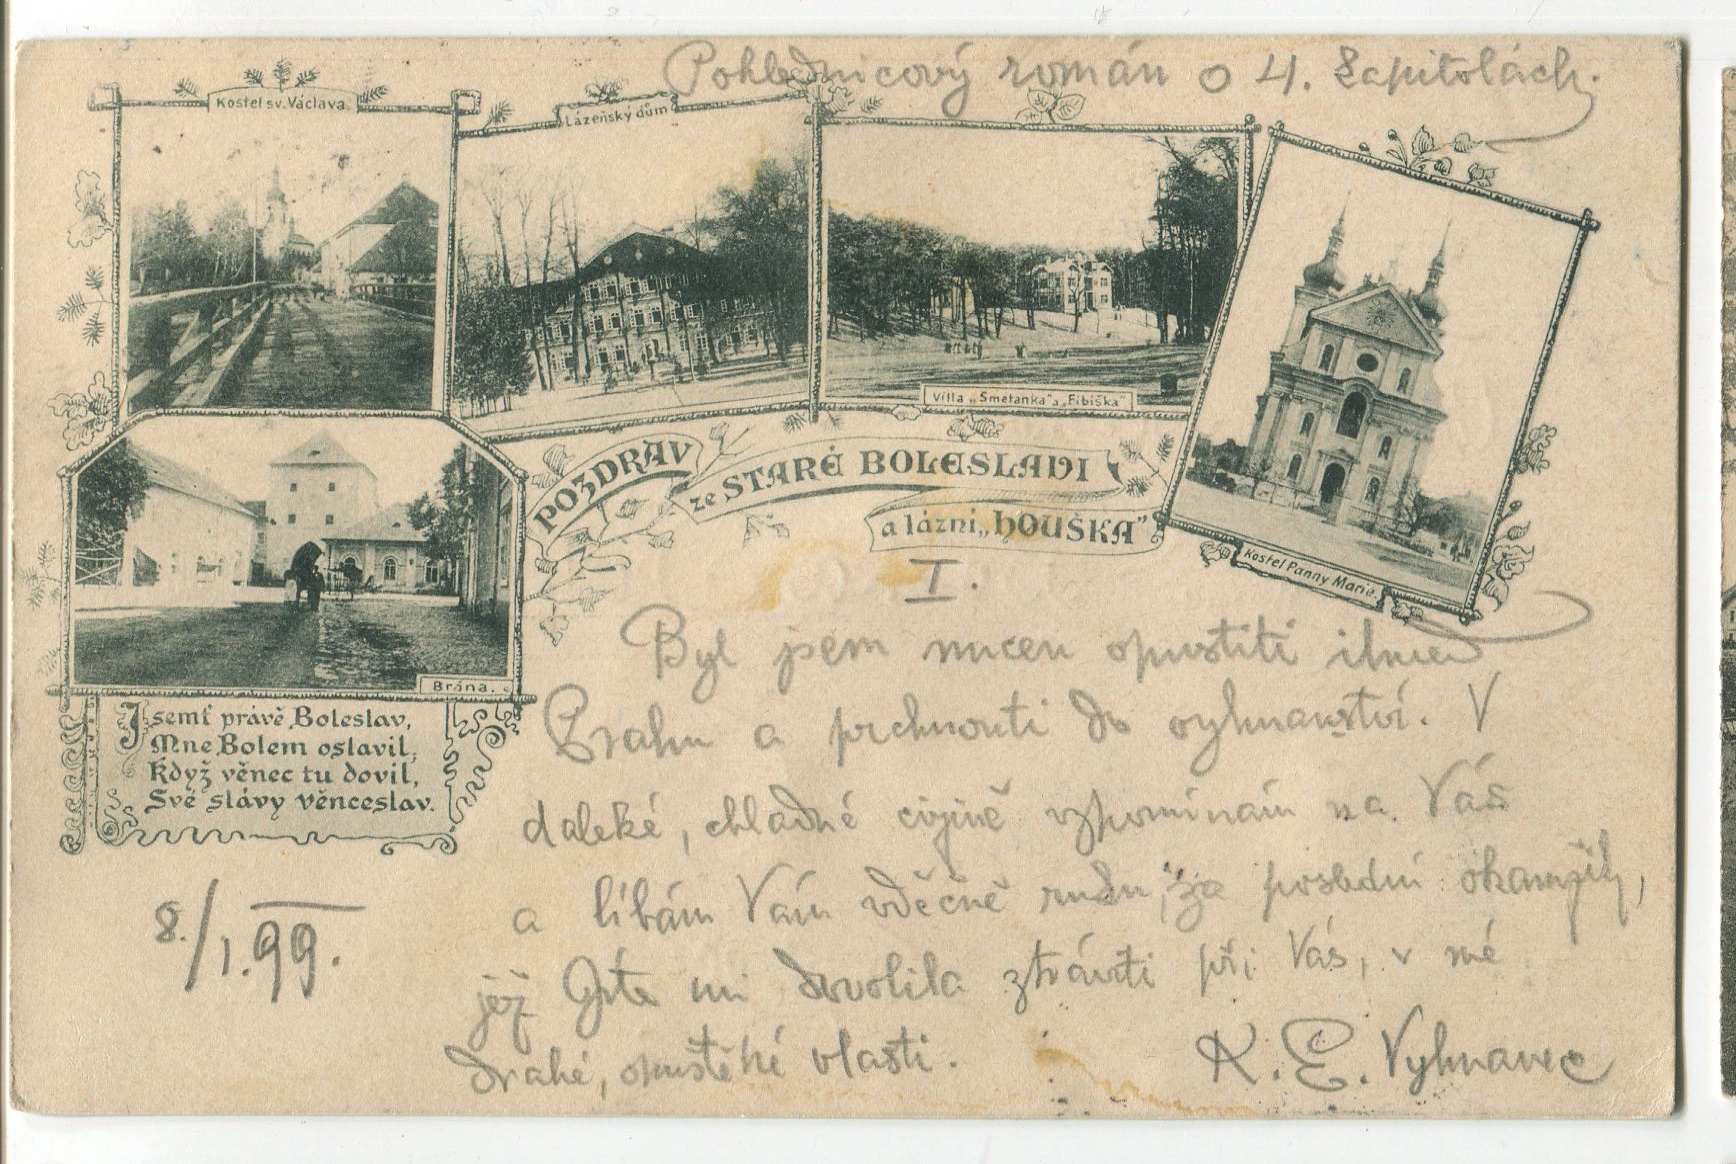 Pohlednicový román o 4. kapitolách.
Kostel sv. Václava.
Lázeňský dům
Villa „Smetanka" a „Fibiška"
Kostel Panny Marie.
Brána.
POZDRAV
ze STARÉ BOLESLAVI
a lázní „HOUŠKA"
Jsemť právě Boleslav,
Mne Bolem oslavil,
Když věnec tu dovil,
Své slávy věnceslav.
8./I. 99.
I.
Byl jsem nucen opustiti
Prahu a prchnouti do vyhnanství. V
daleké, chladné cizině vzpomínám na Vás
a líbám Vám vděčně ruku, za poslední okamžik,
jejž jste mi dovolila ztráviti při Vás, v mé
drahé, opuštěné vlasti.
K. E. Vyhnanec